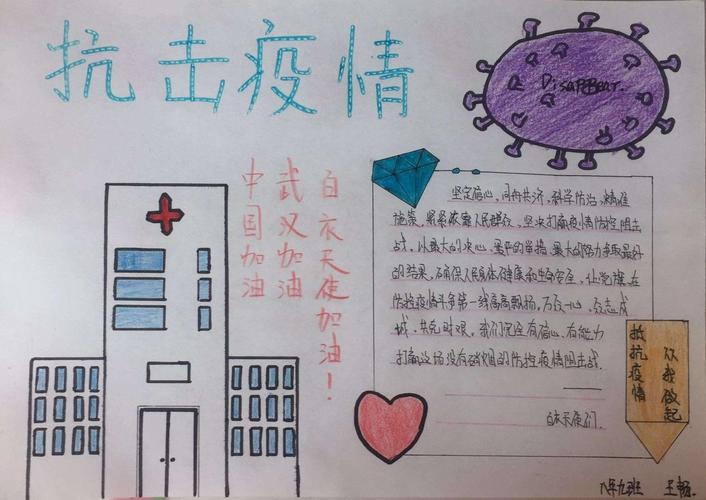 抗击疫情
DisapBear.
白衣天使加油！
武汉加油
中国加油
坚定信心，同舟共济，科学防治，精准
施策，紧紧依靠人民群众，坚决打赢疫情防控阻击
战，以最大的决心、最严的举措、最大的努力争取最好
的结果，确保人民身体健康和生命安全，让党旗在
防控疫情斗争第一线高高飘扬，万众一心，众志成
城，共克时艰，我们完全有信心、有能力
打赢这场没有硝烟的防控疫情阻击战．
白衣天使们．
从我做起
抵抗疫情
八年九班 王畅．